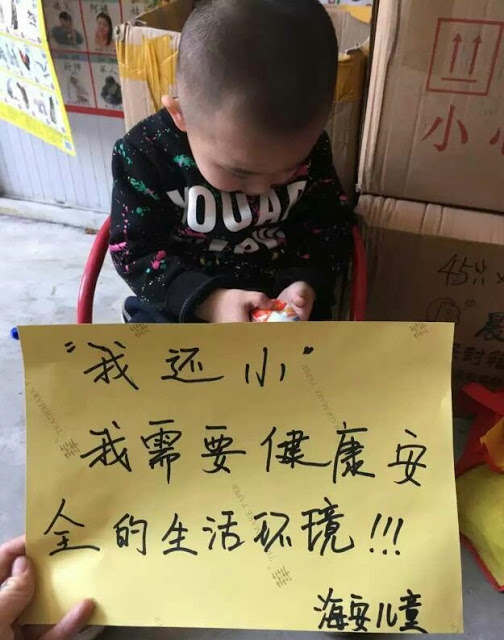 YOU AR
小
45
"我还小"
我需要健康安
全的生活环境!!!
海安儿童